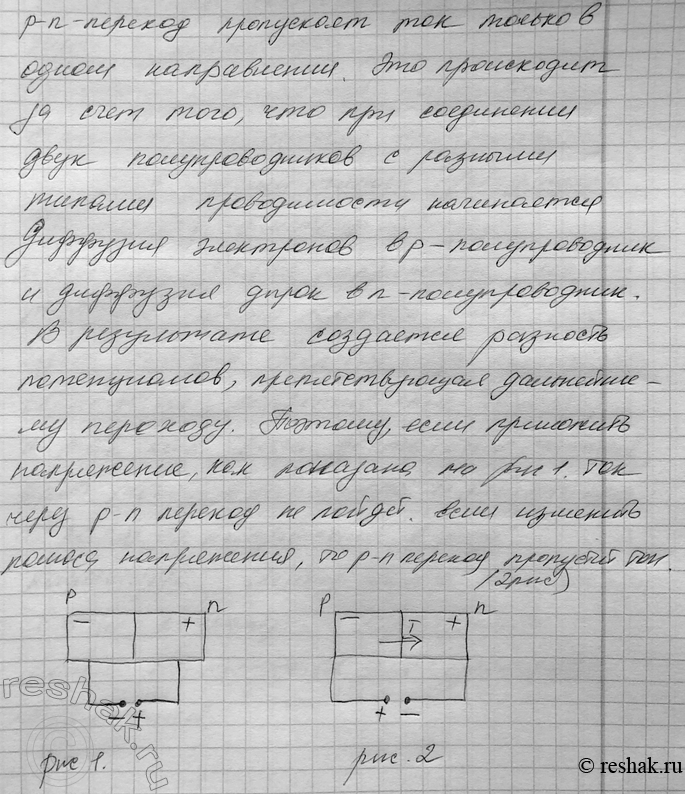 p-n-переход пропускает ток только в
одном направлении. Это происходит
за счет того, что при соединении
двух полупроводников с разными
типами проводимости начинается
диффузия электронов в p-полупроводник
и диффузия дырок в n-полупроводник.
В результате создается разность
потенциалов, препятствующая дальнейше-
му переходу. Поэтому, если приложить
напряжение, как показано на рис 1. ток
через p-n переход не пойдёт. Если изменить
полюса напряжения, то p-n переход пропустит ток.
(2рис)
p n p n
- + - I +
- + + -
рис 1. рис. 2
reshak.ru
© reshak.ru